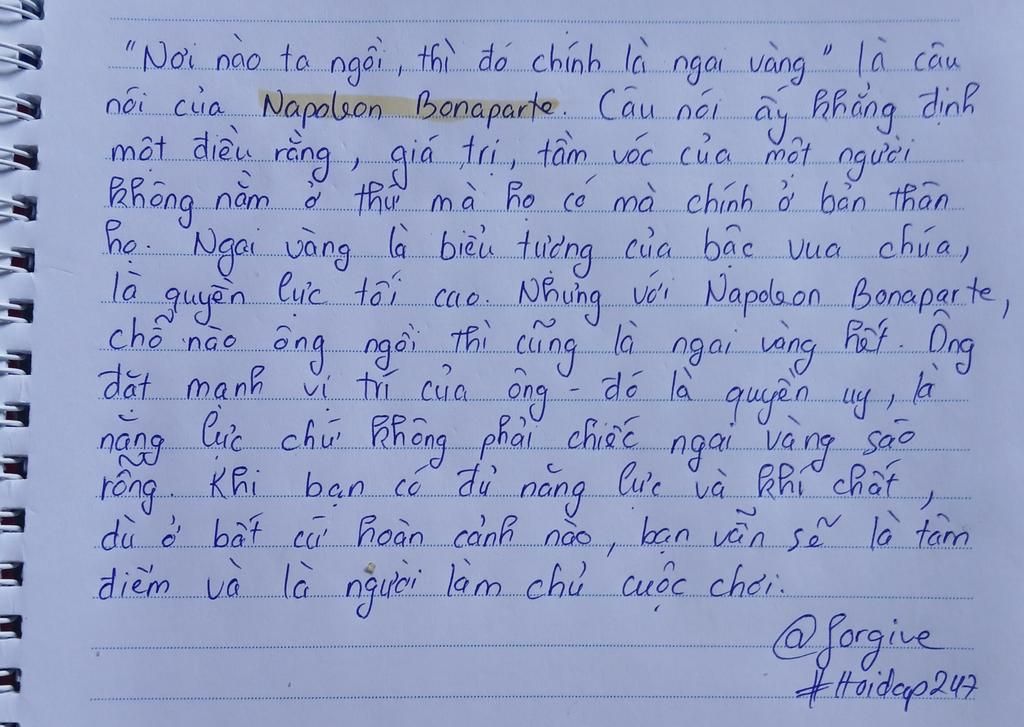 "Nơi nào ta ngồi, thì đó chính là ngai vàng" là câu
nói của Napoleon Bonaparte. Câu nói ấy khẳng định
một điều rằng, giá trị, tầm vóc của một người
không nằm ở thứ mà họ có mà chính ở bản thân
họ. Ngai vàng là biểu tượng của bậc vua chúa,
là quyền lực tối cao. Nhưng với Napoleon Bonaparte,
chỗ nào ông ngồi thì cũng là ngai vàng hết. Ông
đặt mạnh vị trí của ông - đó là quyền uy, là
năng lực chứ không phải chiếc ngai vàng sáo
rỗng. Khi bạn có đủ năng lực và khí chất,
dù ở bất cứ hoàn cảnh nào, bạn vẫn sẽ là tâm
điểm và là người làm chủ cuộc chơi.
@forgive
#Hoidap247